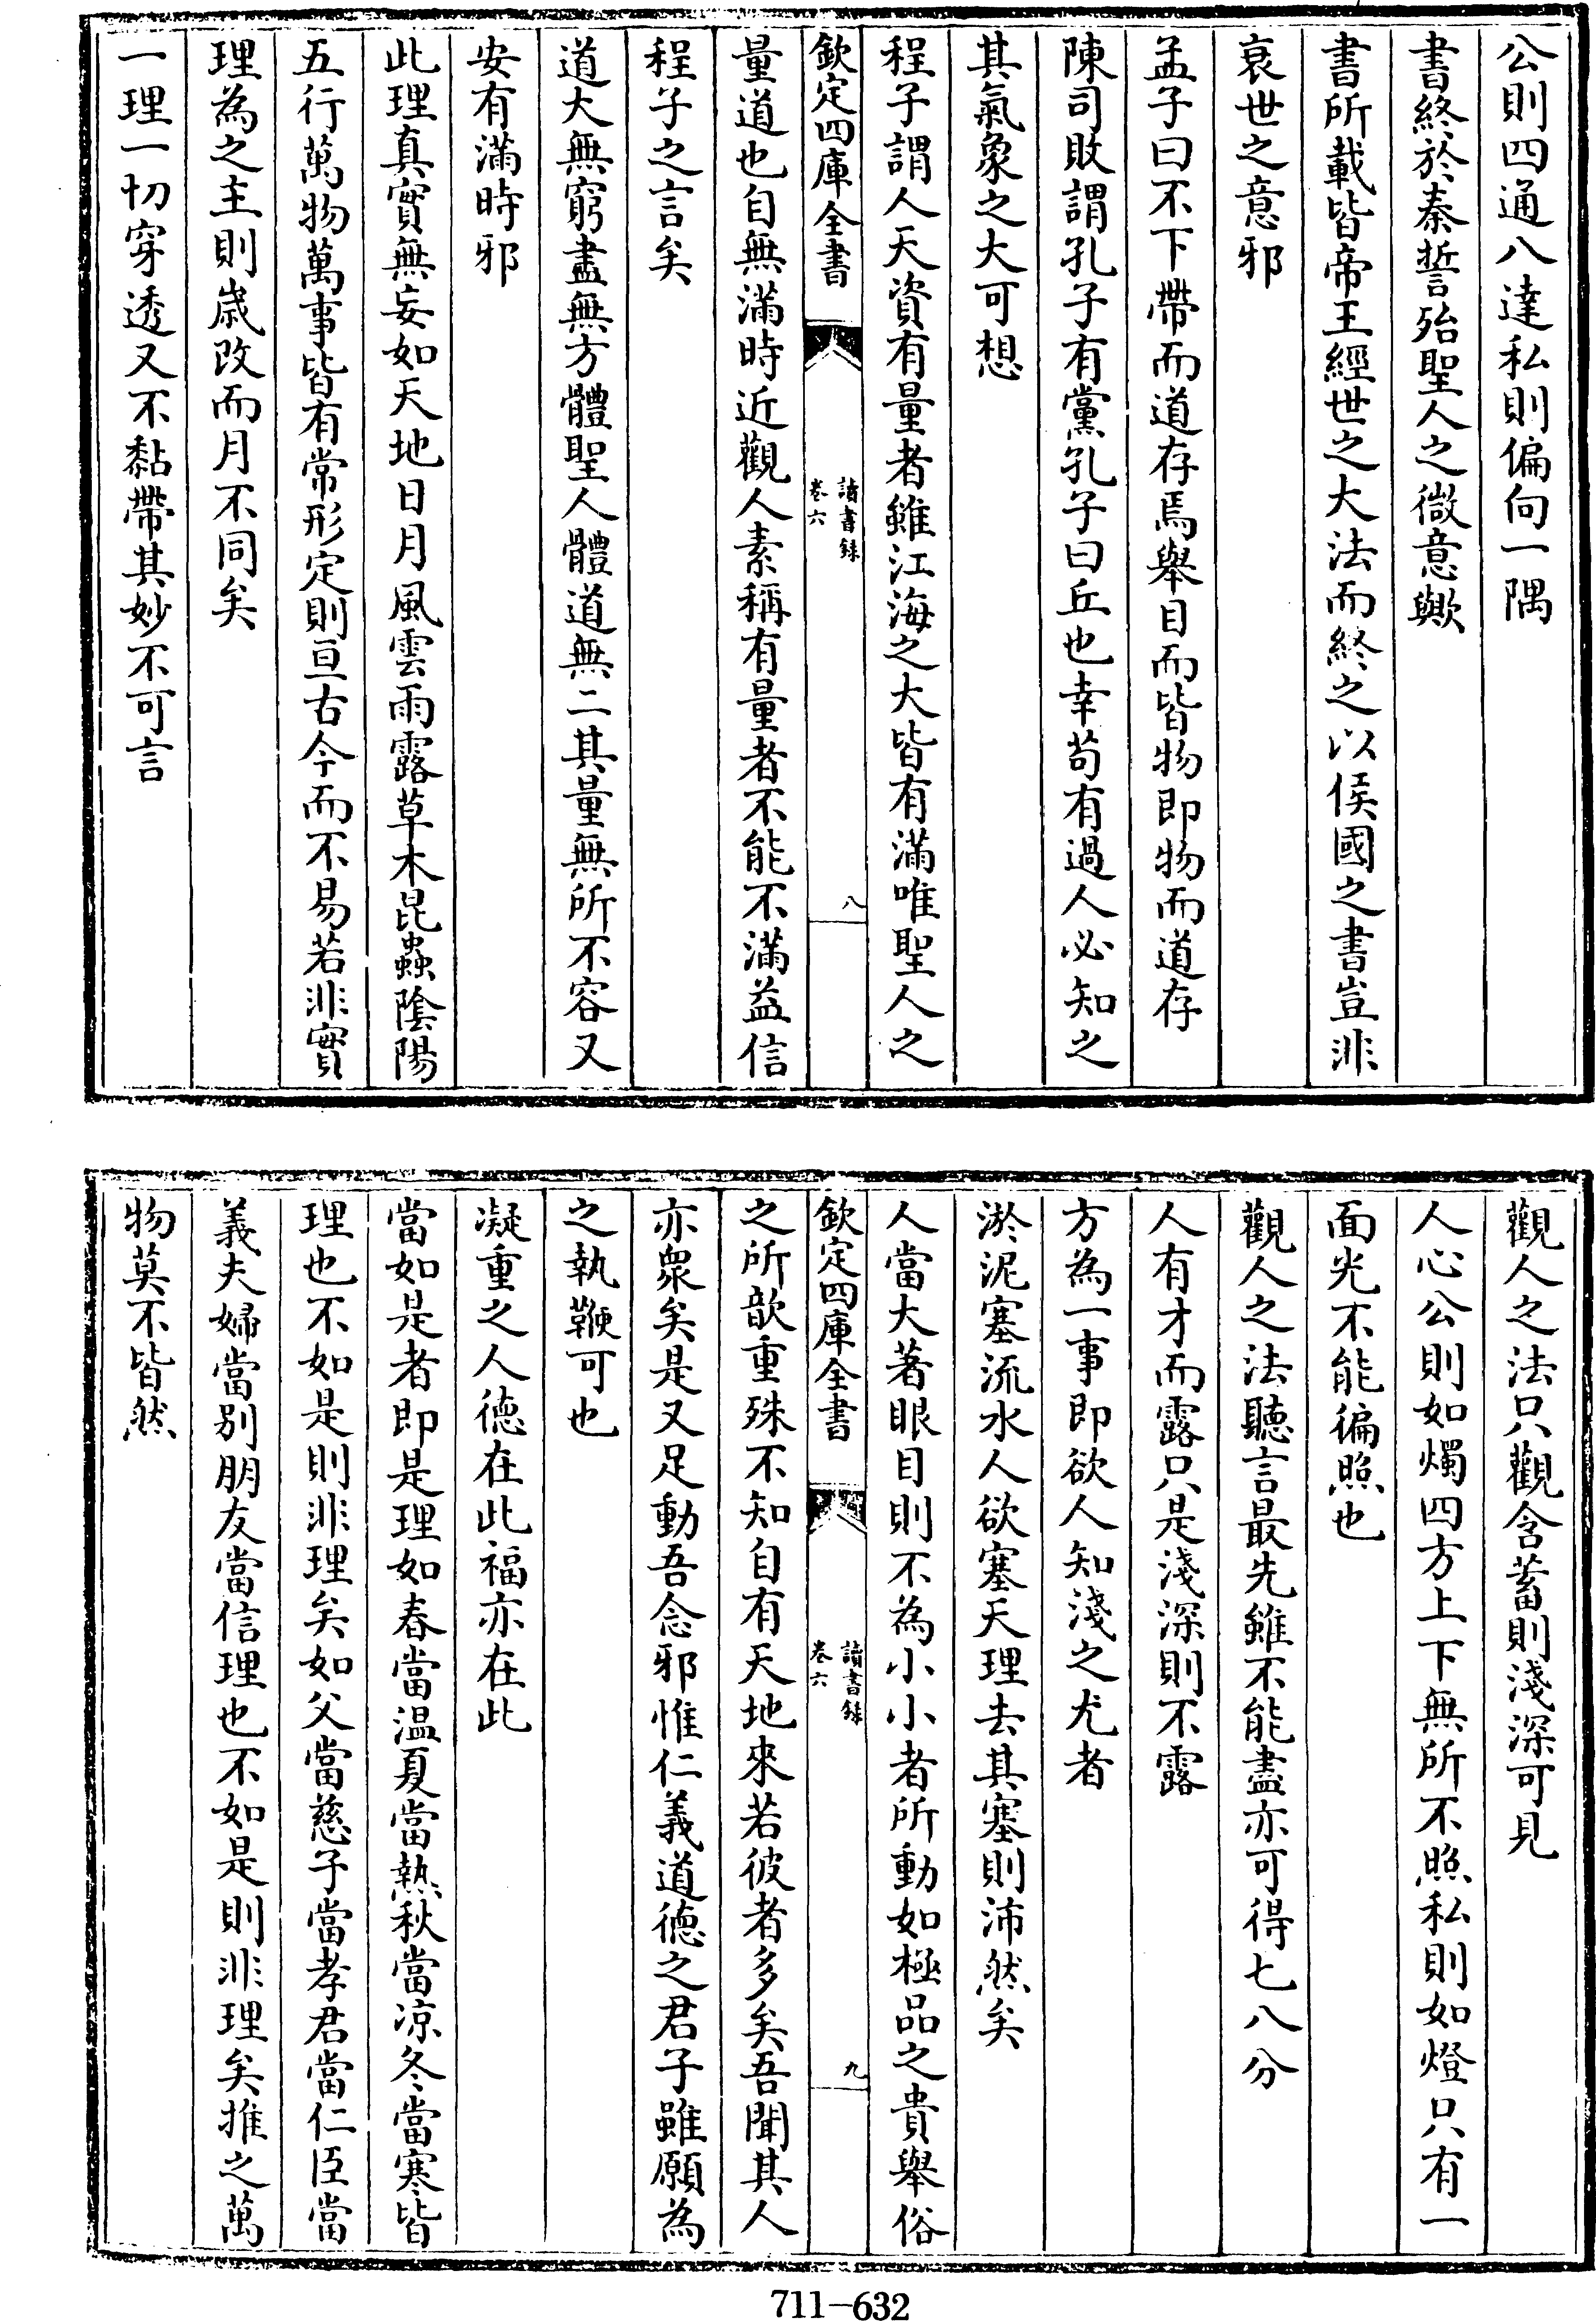 公則四通八達私則偏向一隅
書終於秦誓殆聖人之微意歟
書所載皆帝王經世之大法而終之以侯國之書豈非
衰世之意邪
孟子曰不下帶而道存焉舉目而皆物即物而道存
陳司敗謂孔子有黨孔子曰丘也幸苟有過人必知之
其氣象之大可想
程子謂人天資有量者雖江海之大皆有滿唯聖人之
欽定四庫全書
讀書録
卷六
八
量道也自無滿時近觀人素稱有量者不能不滿益信
程子之言矣
道大無窮盡無方體聖人體道無二其量無所不容又
安有滿時邪
此理真實無妄如天地日月風雲雨露草木昆蟲陰陽
五行萬物萬事皆有常形定則亘古今而不易若非實
理為之主則歲改而月不同矣
一理一切穿透又不黏帶其妙不可言
觀人之法只觀含蓄則淺深可見
人心公則如燭四方上下無所不照私則如燈只有一
面光不能徧照也
觀人之法聽言最先雖不能盡亦可得七八分
人有才而露只是淺深則不露
方為一事即欲人知淺之尤者
淤泥塞流水人欲塞天理去其塞則沛然矣
人當大著眼目則不為小小者所動如極品之貴舉俗
欽定四庫全書
讀書録
卷六
九
之所歆重殊不知自有天地來若彼者多矣吾聞其人
亦衆矣是又足動吾念邪惟仁義道德之君子雖願為
之執鞭可也
凝重之人德在此福亦在此
當如是者即是理如春當温夏當熱秋當凉冬當寒皆
理也不如是則非理矣如父當慈子當孝君當仁臣當
義夫婦當别朋友當信理也不如是則非理矣推之萬
物莫不皆然
711-632